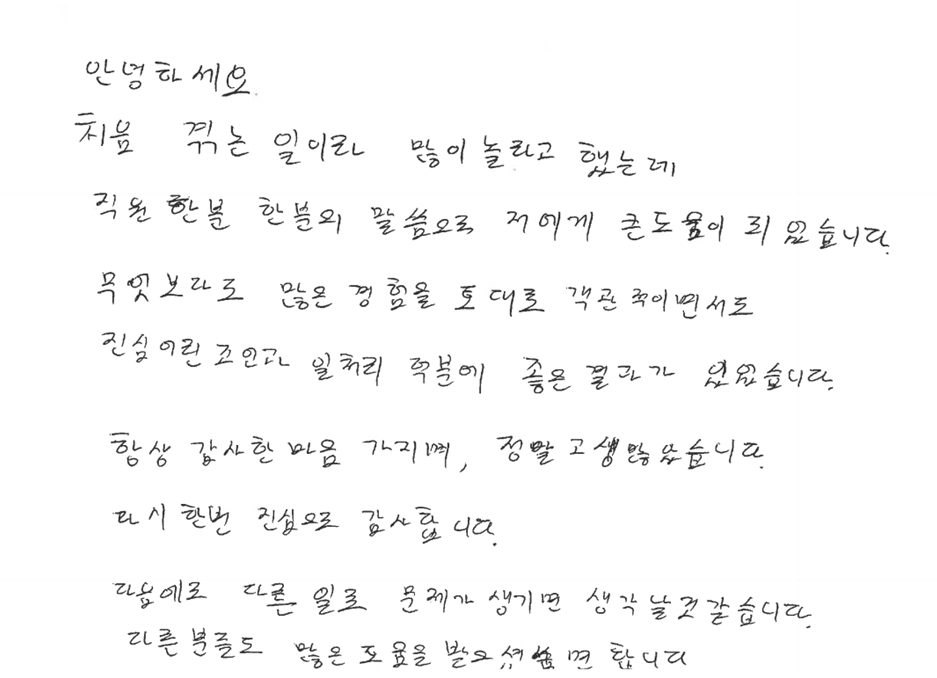 안녕하세요.
처음 겪는 일이라 많이 놀라고 했는데
직원 한분 한분의 말씀으로 저에게 큰도움이 되었습니다.
무엇보다도 많은 경험을 토대로 객관적이면서도
진심어린 조언과 일처리 덕분에 좋은 결과가 있었습니다.
항상 감사한 마음 가지며, 정말 고생많았습니다.
다시 한번 진심으로 감사합니다.
다음에도 다른 일로 문제가 생기면 생각날것같습니다.
다른 분들도 많은 도움을 받으셨으면 합니다